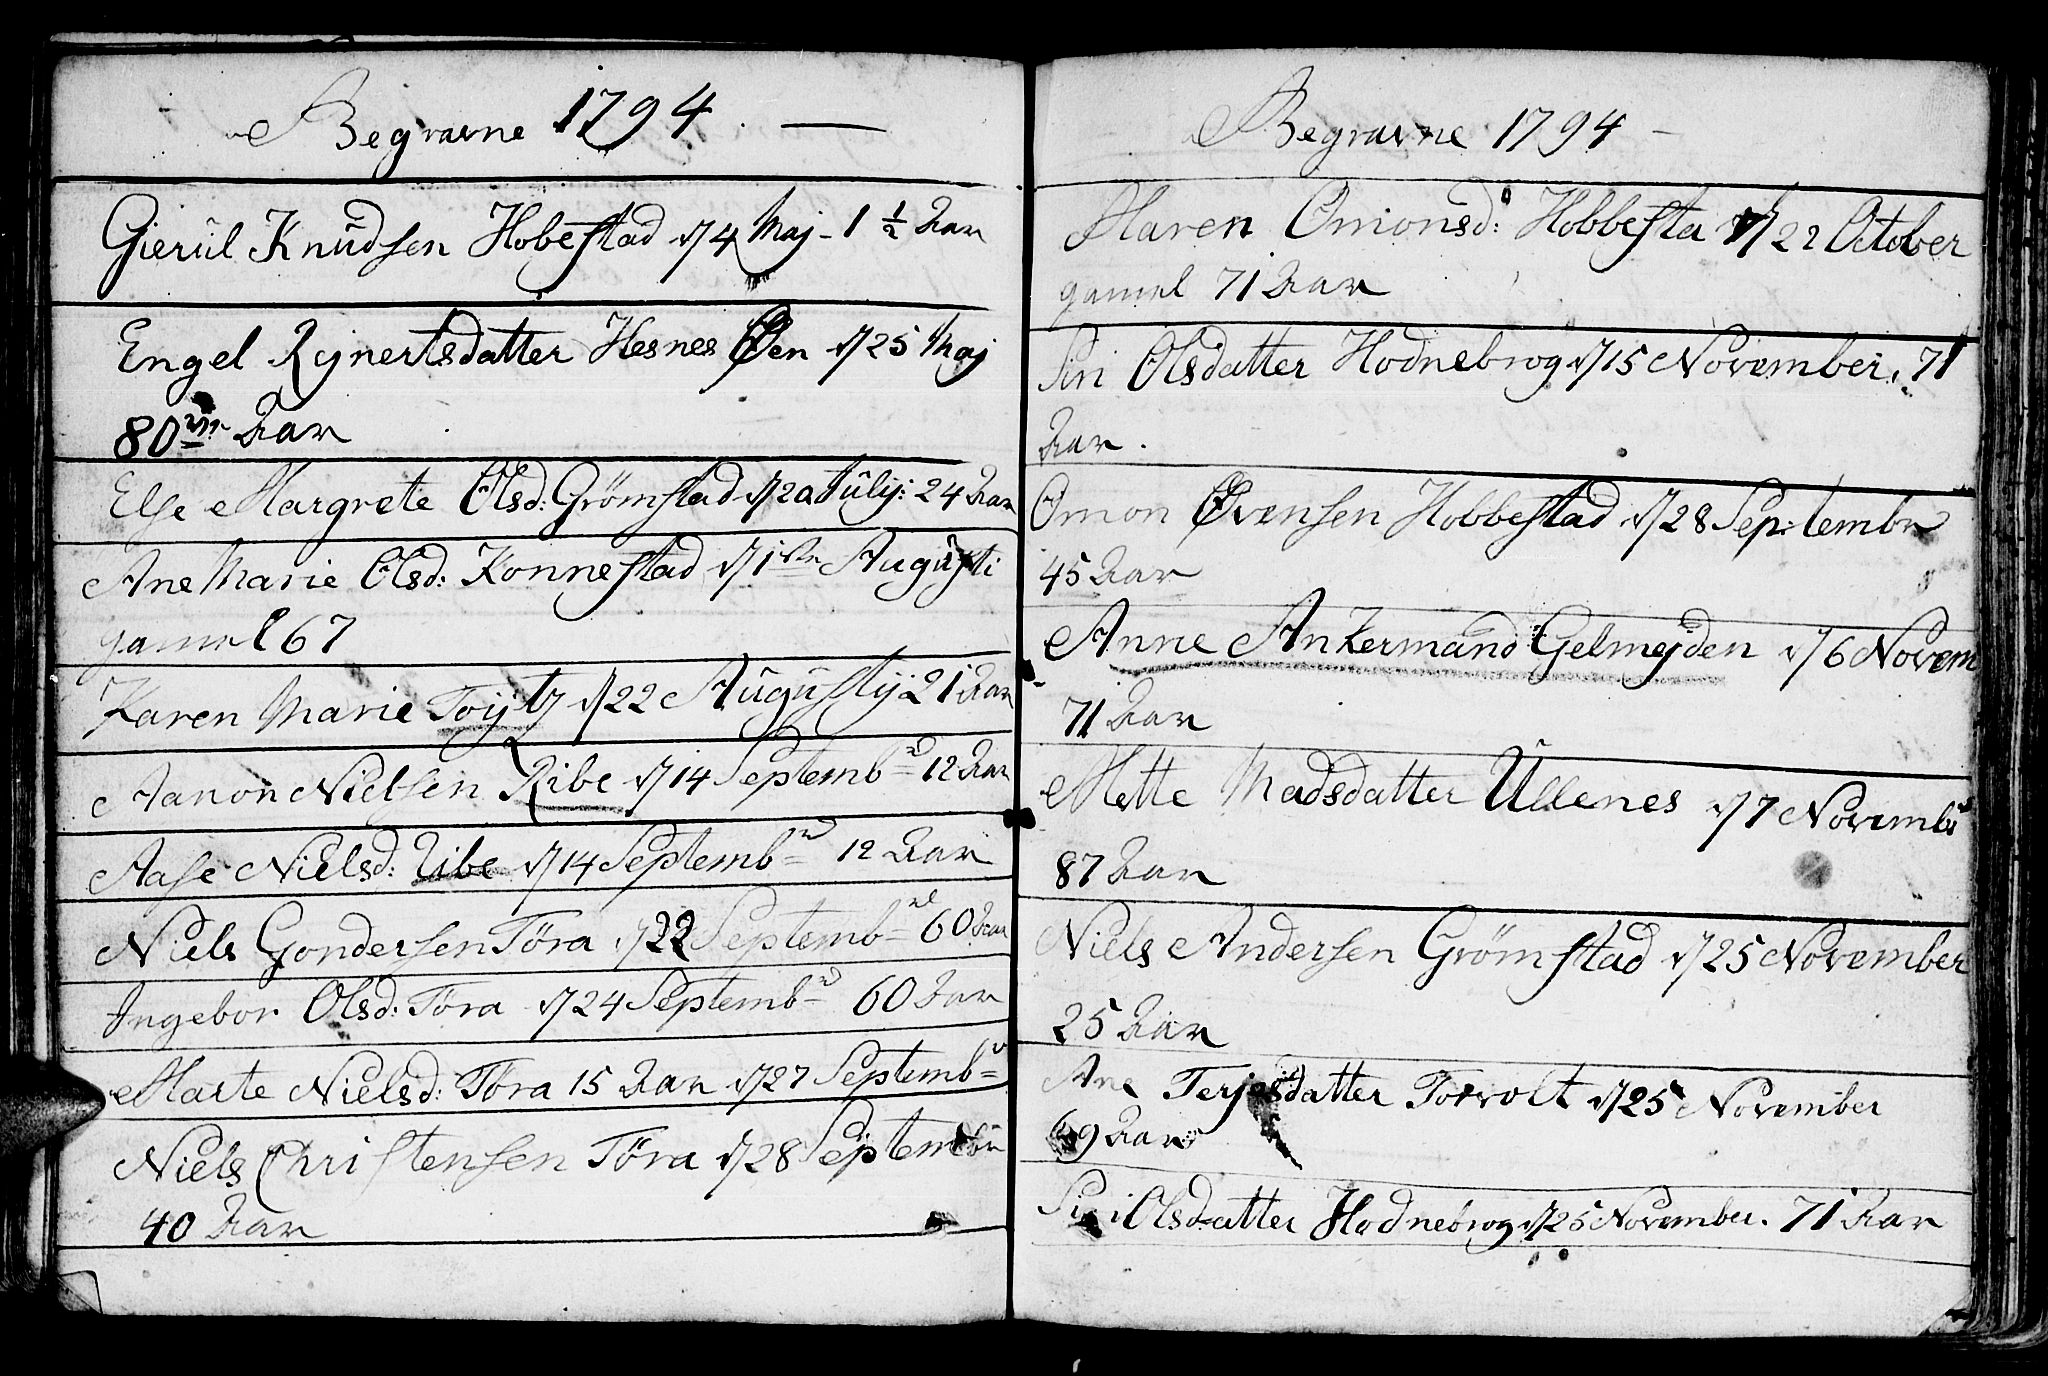 Begravne 1794. —
Gierul Knudsen Hobestad d 4 Maj - 1 ½ Aar
Engel Rejnertsdatter Hesnes Øen d 25 Maj
80 Aar
Else Margrete Olsd: Grömstad d 20 Julij: 24 Aar
Ane Marie Olsd: Konnestad d 1ste Augusti
gamel 67
Karen Marie d 22 Augustij 21 Aar
Aanon Nielsen Ribe d 14 Septembr 12 Aar
Aase Nielsd: Ribe d 14 Septembr 12 Aar
Niels Gondersen Töra d 22 Septembr 60 Aar
Ingebor Olsd: Töra d 24 Septembr 60 Aar
Marte Nielsd: Töra 15 Aar d 27 Septembr
Niels Christensen Töra d 28 Septembr
40 Aar
Begravne 1794 —
Maren Omonsd: Hobbesta d 22 October
gamel 71 Aar
Siri Olsdatter Hodnebrog d 15 November. 71
Aar.
Omon Øvensen Hobbestad d 28 Septembr
45 Aar
Anne Ankermand Gelmejden d 6 Novem
71 Aar
Mette Madsdatter Ullenes d 7 Novembr
87 Aar
Niels Andersen Grömstad d 25 November
25 Aar
Ane Terjesdatter Torvolt d 25 November
69 Aar
Siri Olsdatter Hodnebrog d 25 November. 71 Aar